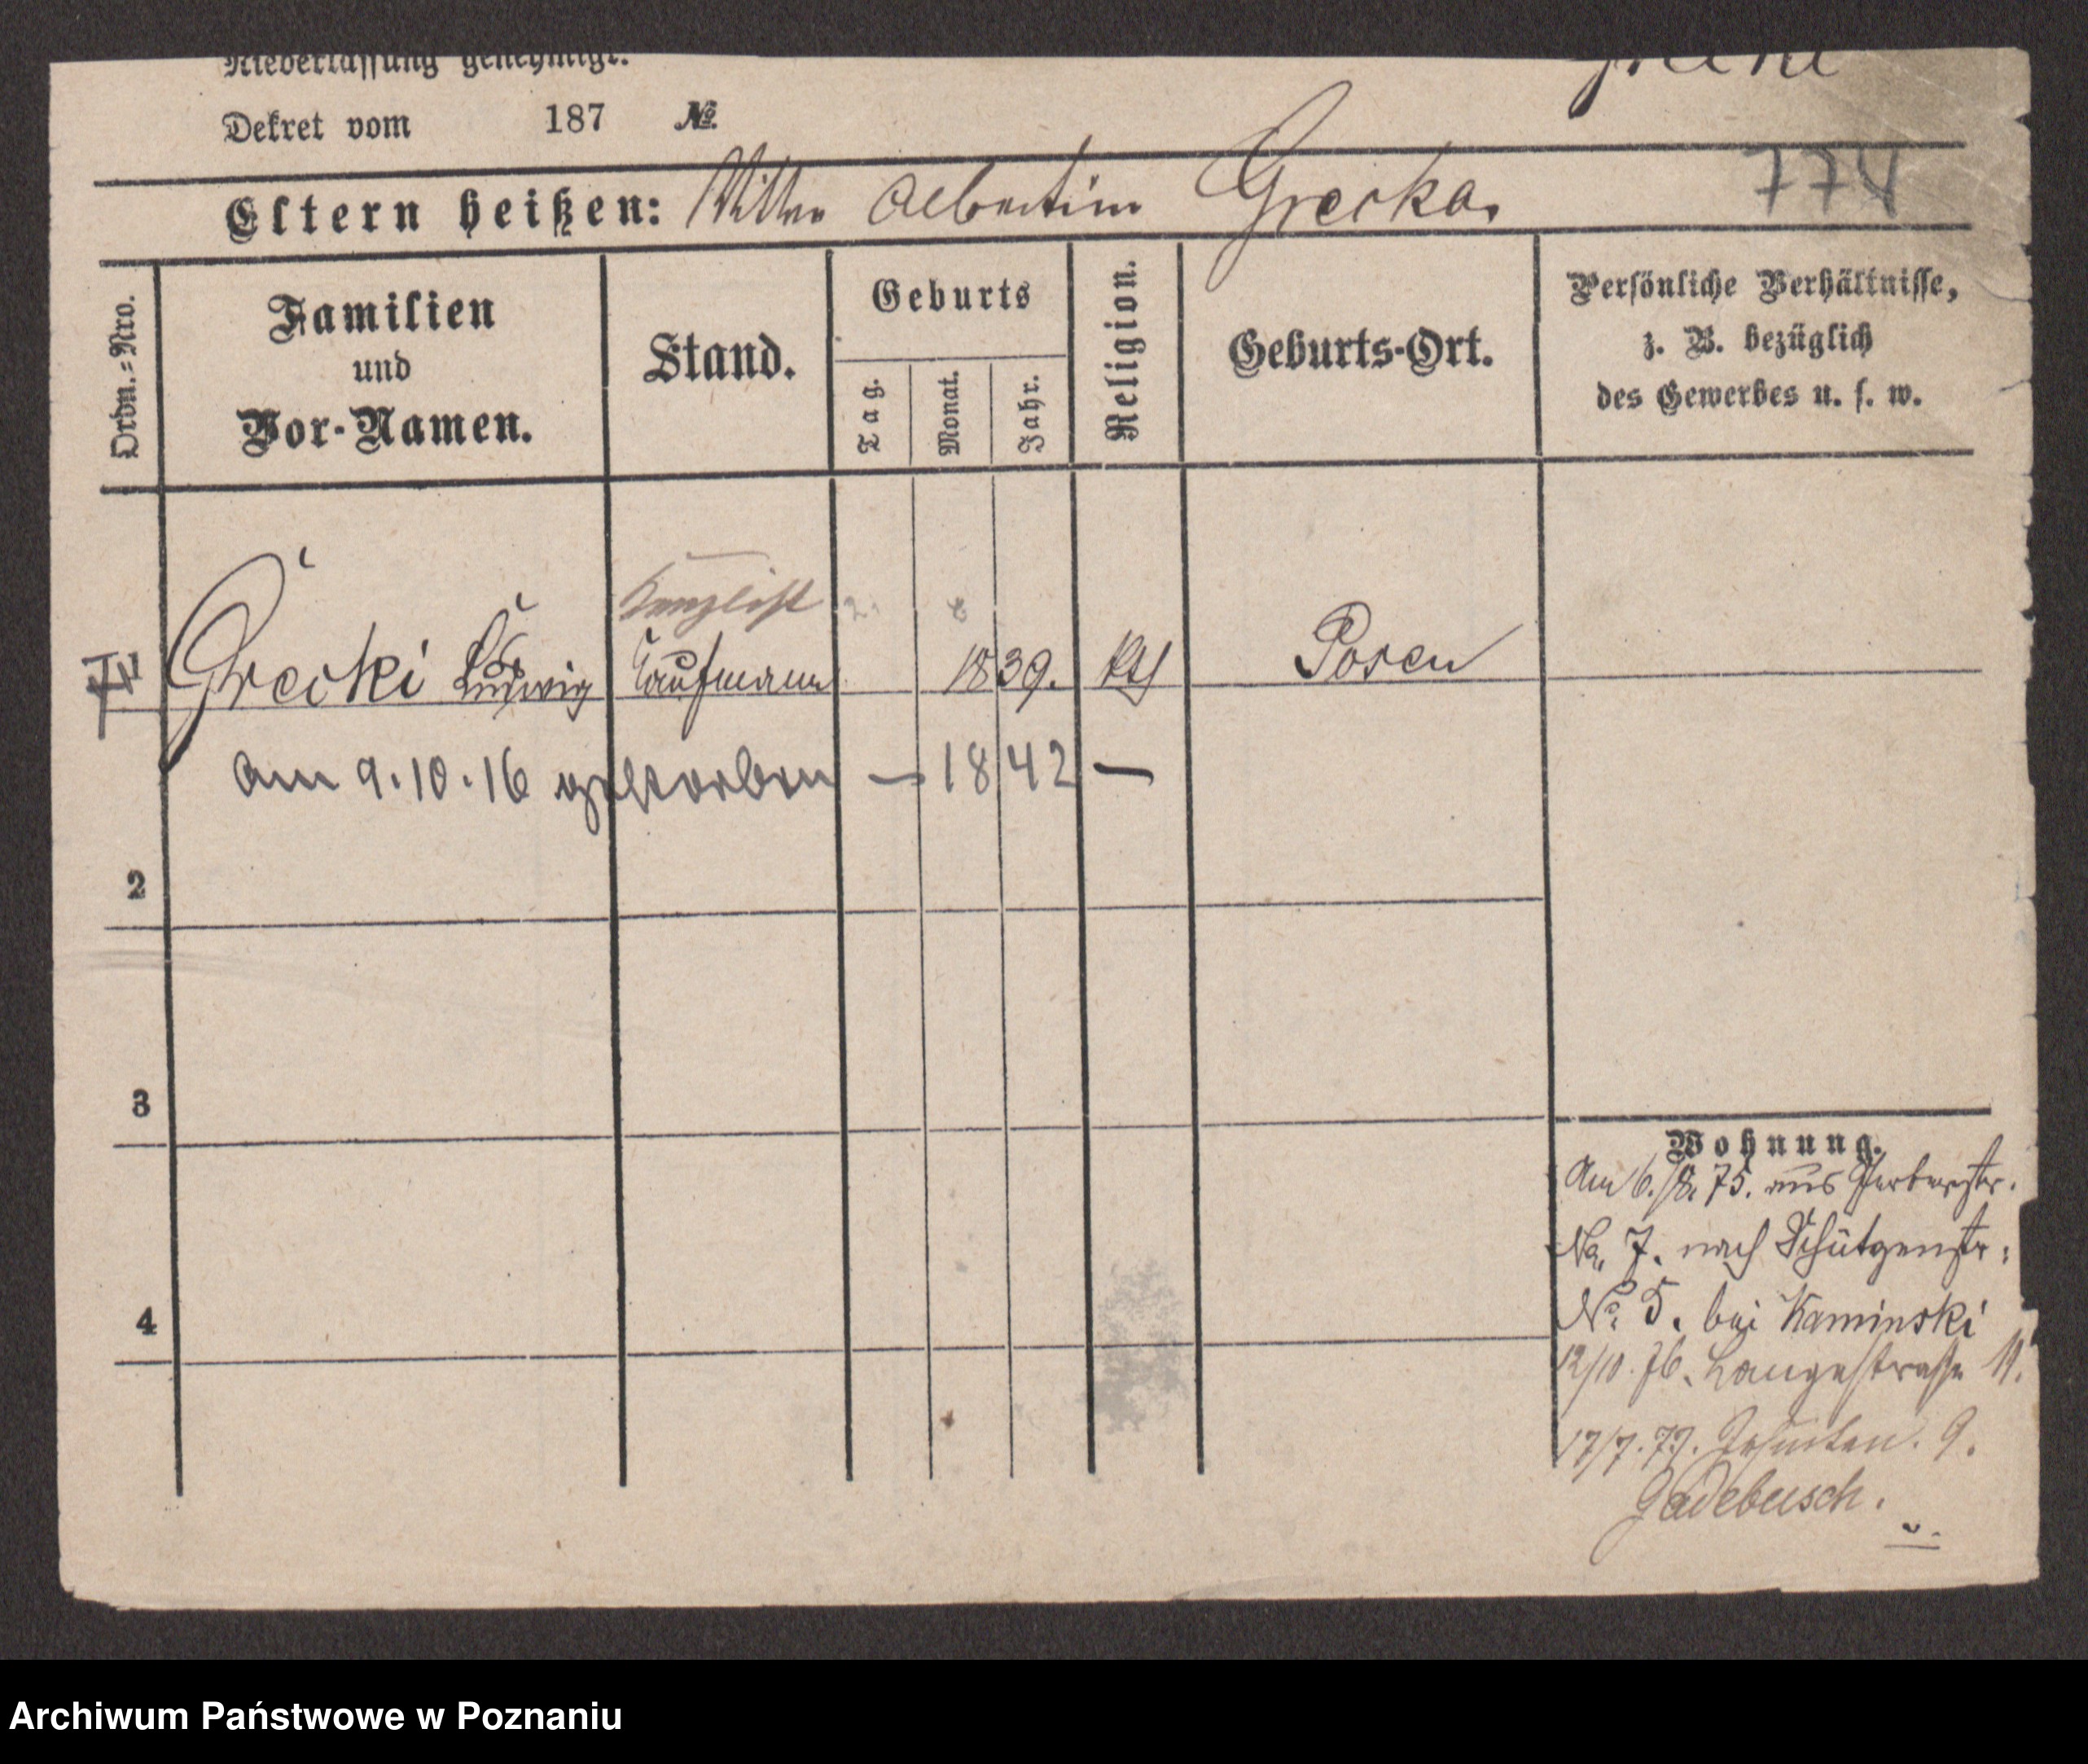 Niederlassung genehmigt.
Dekret vom 187 №
Eltern heißen: Albertine Grecka.
774
Ordn.=Nro.
Familien
und
Vor-Namen.
Stand.
Geburts
Tag.
Monat.
Jahr.
Religion.
Geburts-Ort.
Persönliche Verhältnisse,
z. B. bezüglich
des Gewerbes u. s. w.
Kanzlist
Grecki Ludwig Kaufmann 1839. Kth Posen
am 9.10.16 gestorben — 1842 —
2
3
4
Wohnung.
Am 6./8. 75. aus Gerberstr.
No. 7. nach Schützenstr.
No. 5. bei Kaminski
12/10. 76. Langestrasse 11.
17/7. 77. Jesuiten. 9.
Gadebusch.